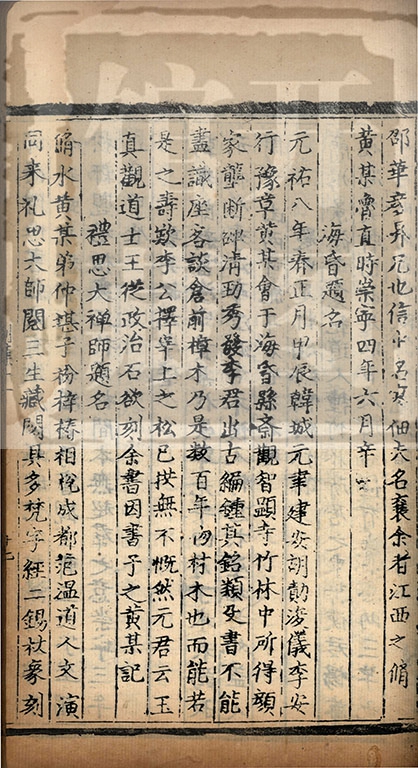 邵華彥昇兄也信中名寔佃夫名襃余者江西之脩
黃某魯直時崇寧四年六月辛
海昏題名
元祐八年春正月甲辰韓城元聿建安胡勛浚儀李安
行豫章黃某會于海昏縣齋觀智顯寺竹林中所得顏
家壟斷碑清勁秀發李君出古編鍾其銘類殳書不能
盡識座客談倉前樟木乃是數百年內村木也而能若
是之壽歎李公擇冢上之松已拱無不慨然元君云玉
真觀道士王從政治石欲刻余書因書予之黃某記
禮思大禪師題名
脩水黃某弟仲堪子枌梓椿相梲成都范溫道人文演
同來礼思大師閱三生藏閱具多梵字經二錫杖篆刻